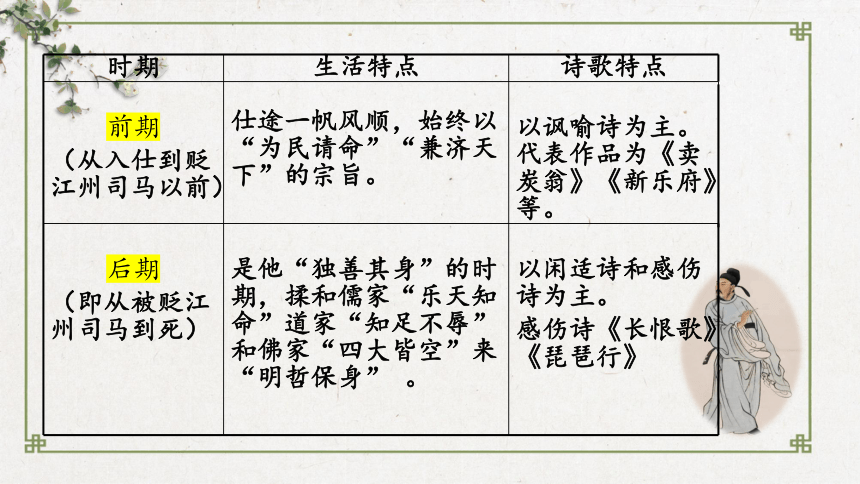 时期 生活特点 诗歌特点
前期
（从入仕到贬
江州司马以前）
仕途一帆风顺，始终以
“为民请命”“兼济天
下”的宗旨。
以讽喻诗为主。
代表作品为《卖
炭翁》《新乐府》
等。
后期
（即从被贬江
州司马到死）
是他“独善其身”的时
期，揉和儒家“乐天知
命”道家“知足不辱”
和佛家“四大皆空”来
“明哲保身” 。
以闲适诗和感伤
诗为主。
感伤诗《长恨歌》
《琵琶行》